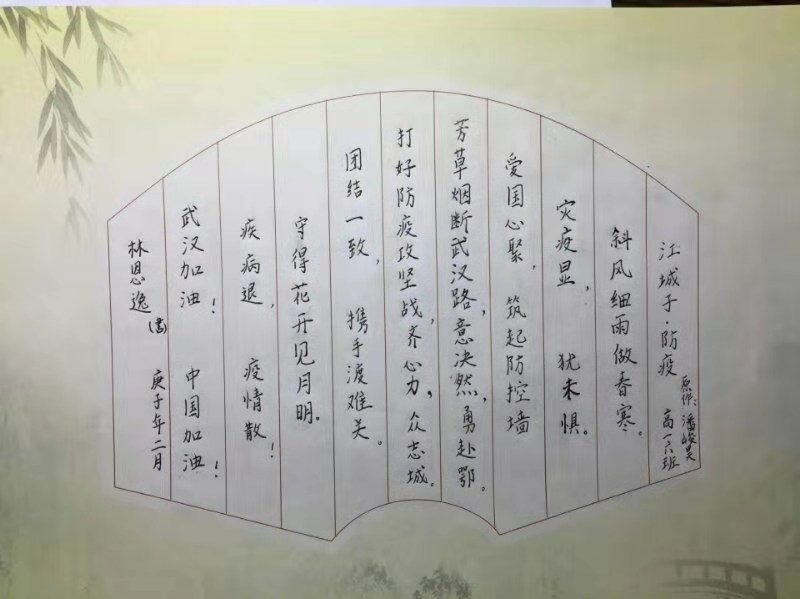 江城子·防疫 原作：潘峻昊 高一六班
斜风细雨做春寒。
灾疫显，犹未惧。
爱国心聚，筑起防控墙
芳草烟断武汉路，意决然，勇赴鄂。
打好防疫攻坚战，齐心力，众志城。
团结一致，携手渡难关。
守得花开见月明。
疾病退，疫情散！
武汉加油！中国加油！
林恩逸（书） 庚子年二月